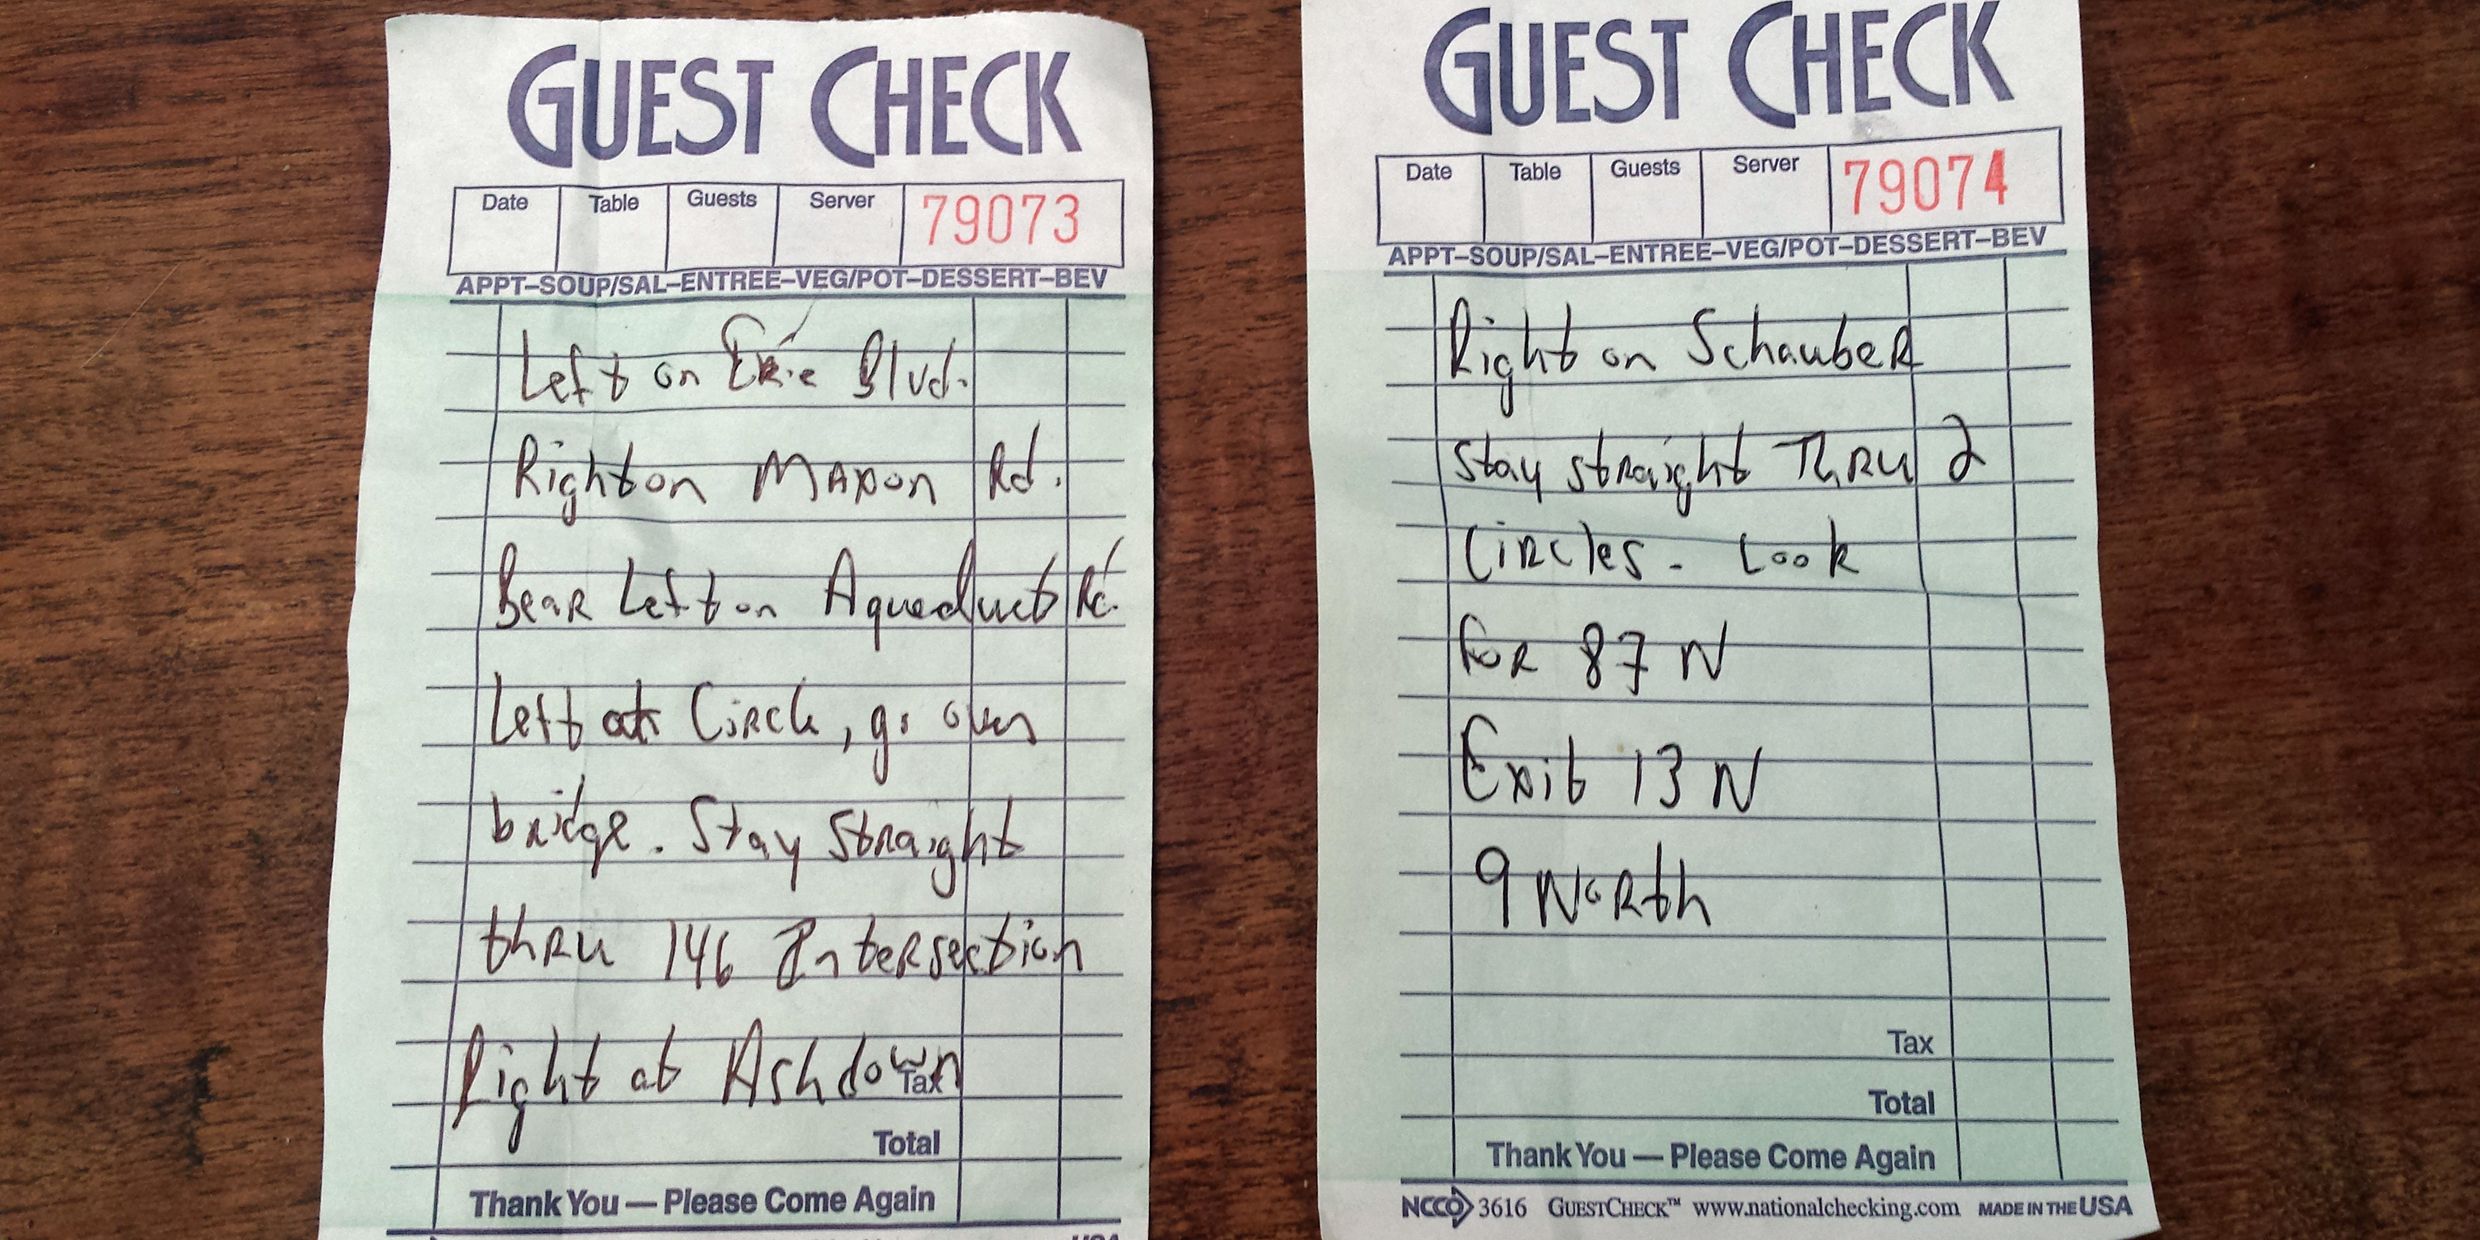 GUEST CHECK
Date Table Guests Server 79073
APPT–SOUP/SAL–ENTREE–VEG/POT–DESSERT–BEV
Left on Erie Blvd.
Right on Maxon Rd.
Bear Left on Aqueduct Rd.
Left at Circle, go over
bridge. Stay Straight
thru 146 Intersection
Right at Ashdown
Tax
Total
Thank You — Please Come Again
USA
GUEST CHECK
Date Table Guests Server 79074
APPT–SOUP/SAL–ENTREE–VEG/POT–DESSERT–BEV
Right on Schauber
Stay straight Thru 2
Circles - Look
for 87 N
Exit 13 N
9 North
Tax
Total
Thank You — Please Come Again
NCCO 3616 GUESTCHECK™ www.nationalchecking.com MADE IN THE USA